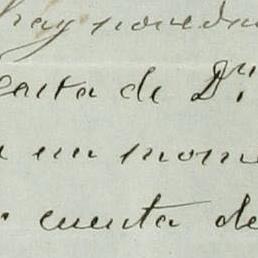 hay noveda
carta de Dn.
en un mome
cuenta de